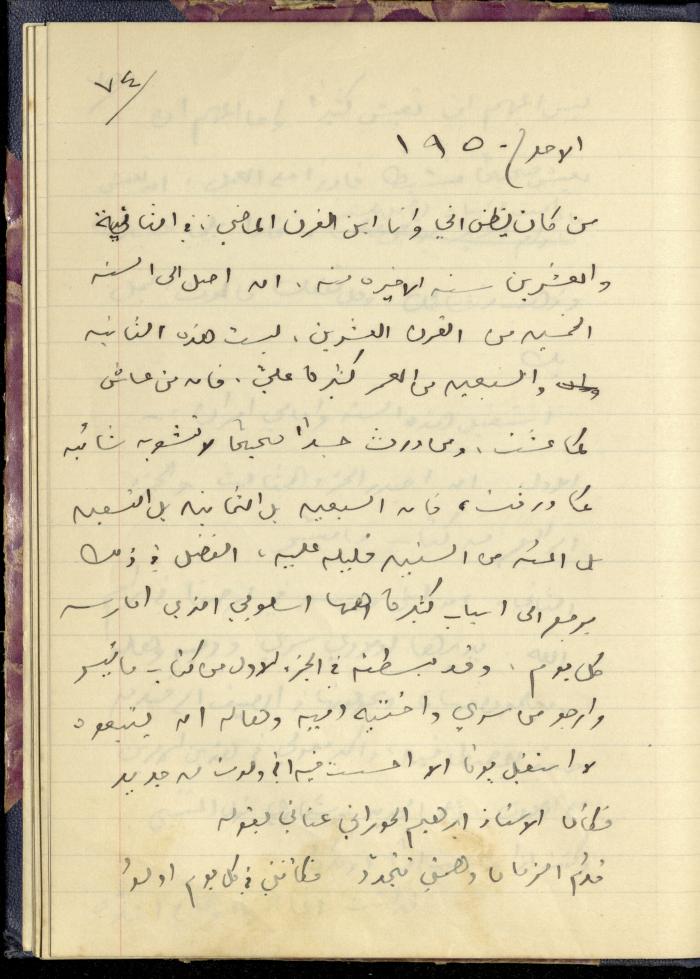 ٧٤/
الاحد ١٩٥٠
من كان يظن اني وانا ابن القرن الماضي، في الثانية
والعشرين سنه الاخيره منه، ان اصل الى السنه
الخمسين من القرن العشرين. ليست هذه الثانيه
والسبعين من العمر كثيرة عليّ. فان من عاش
كما عشت، ومن ورث جسداً صحيحاً لا تشوبه شائبه
كما ورثت، فان السبعين بل الثمانين بل التسعين
بل المئه من السنين قليله عليه، الفضل في ذلك
يرجع الى اسباب كثيرة اهمها اسلوبي الذي امارسه
كل يوم. وقد بسطته في الجزء الاول من كتاب
وارجو من سري واخته وهاله ان يتبعوه
لا استقبل يوماً الا احسست فيه اني ولدت من جديد
فكأنما الاستاذ ابرهيم الحوراني عناني بقوله
قدم الزمان وهمتي تتجدد فكأنني في كل يوم اولد